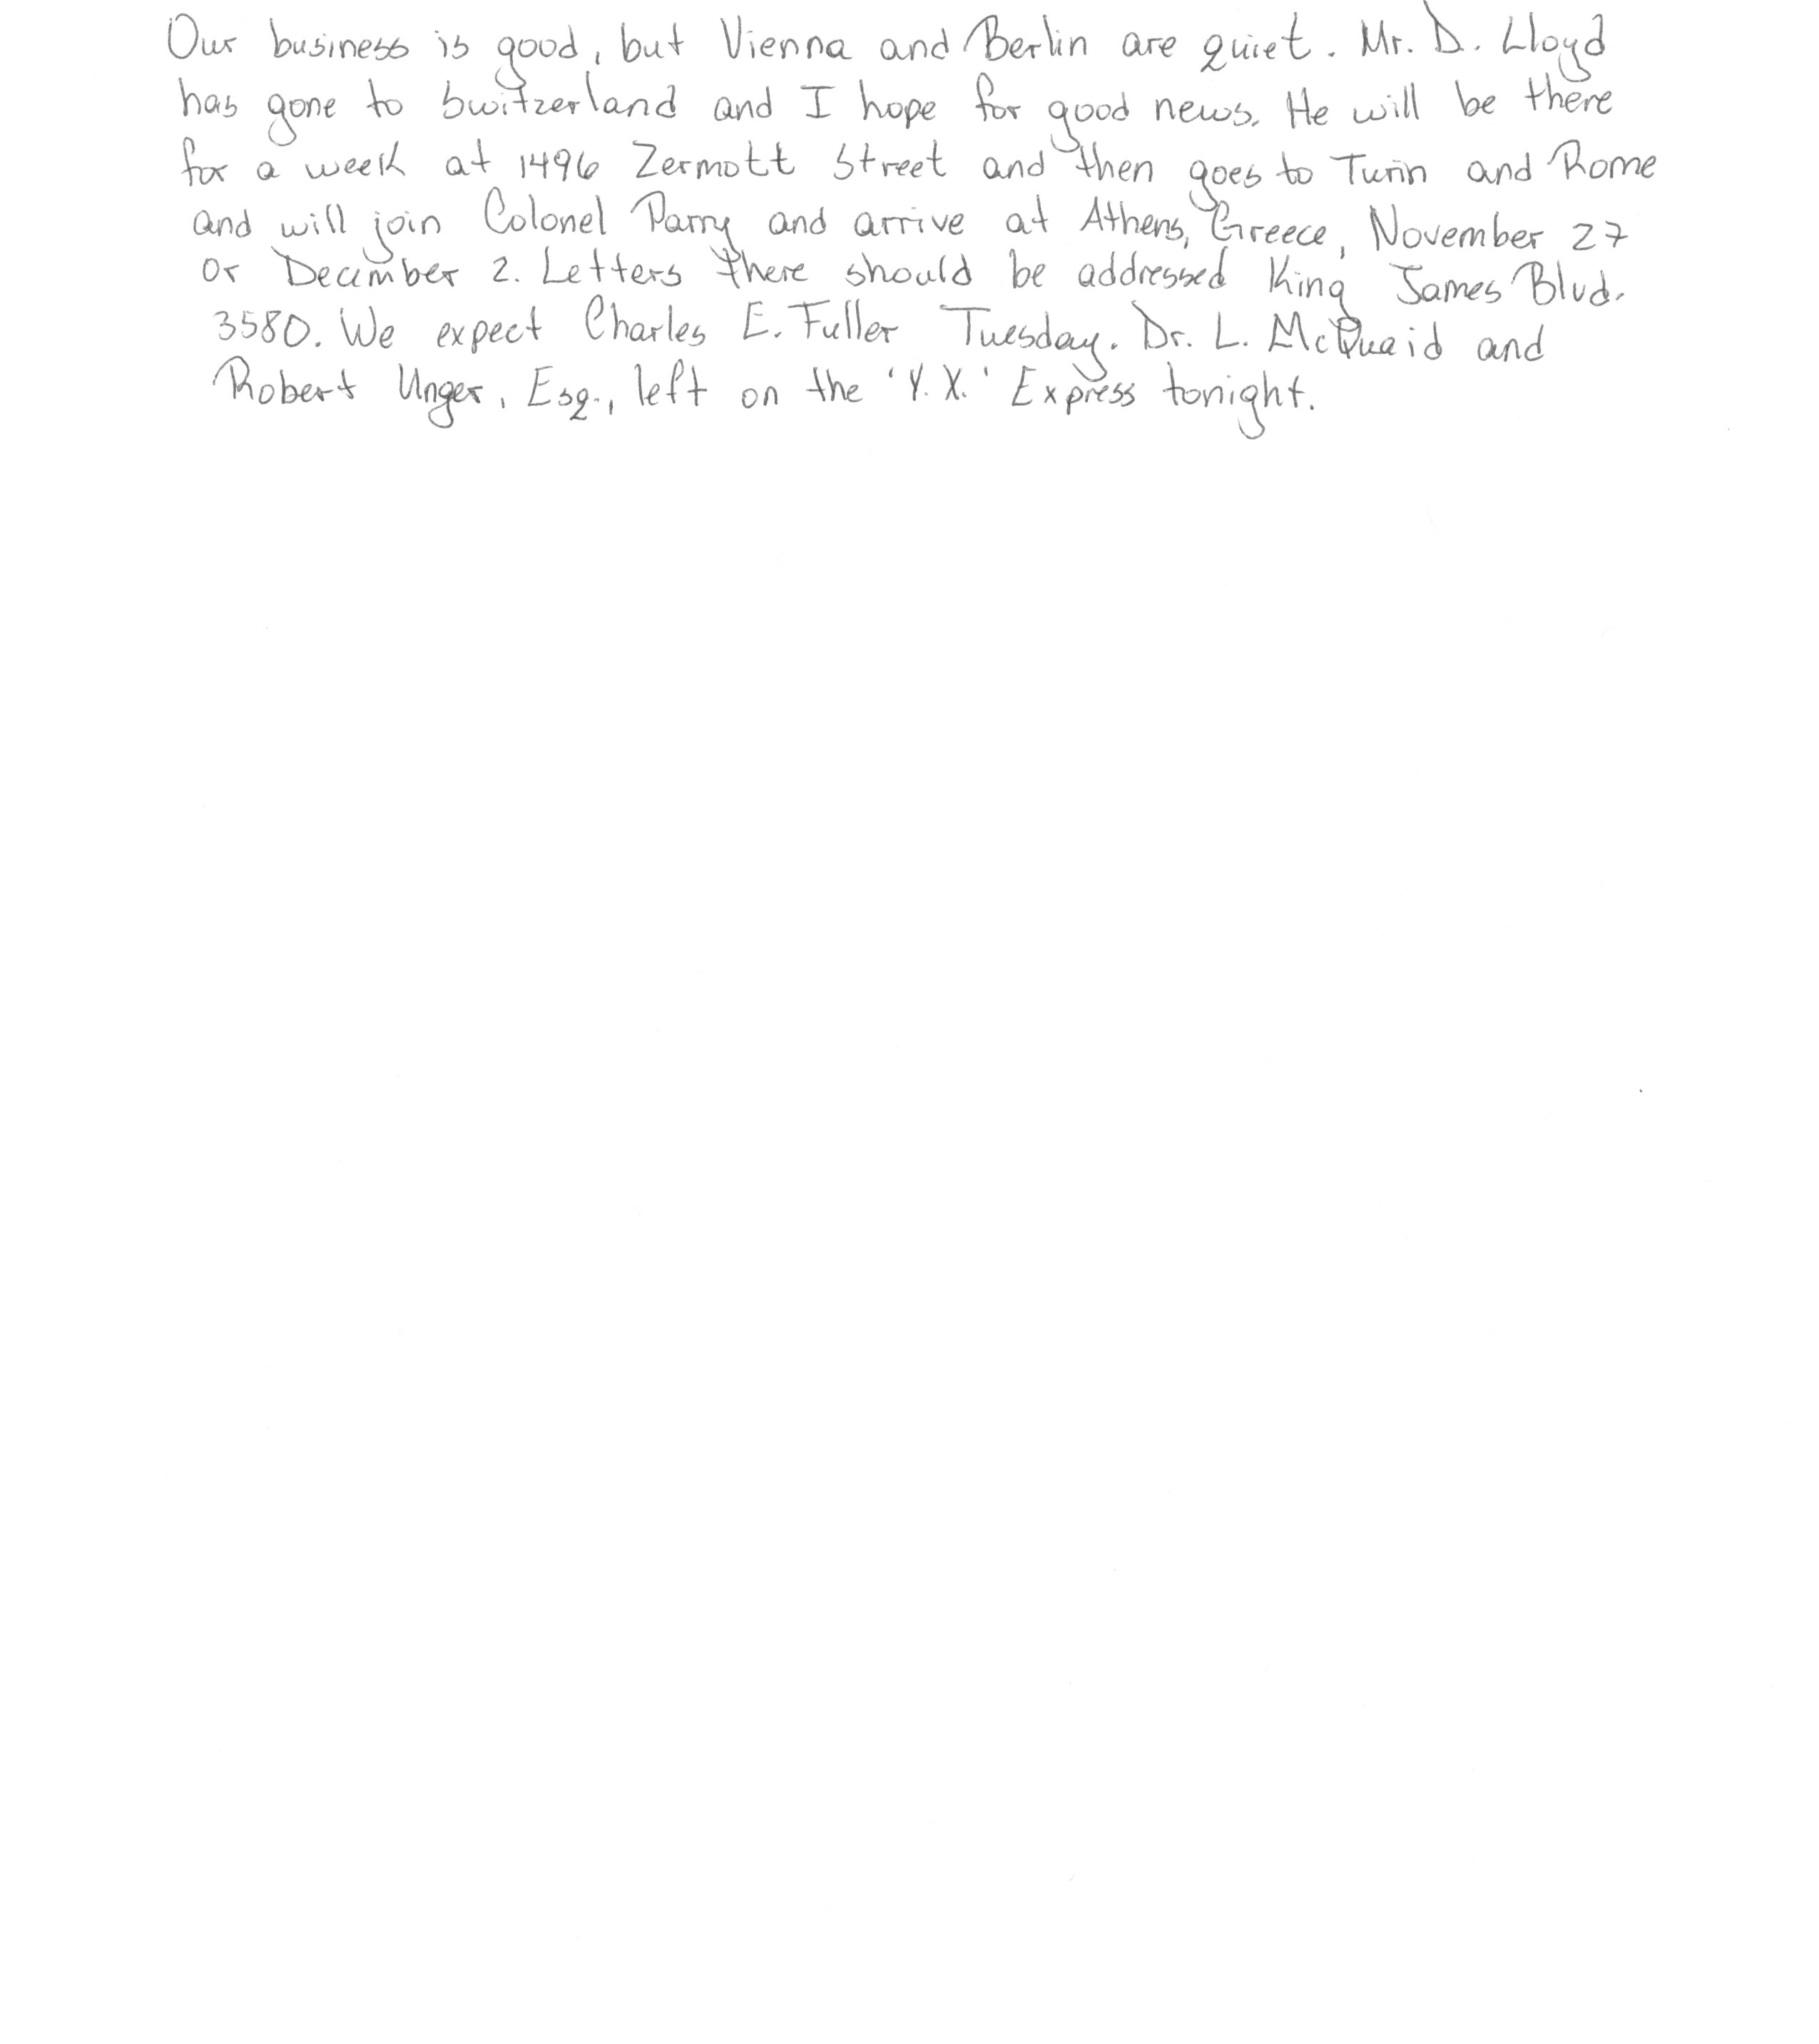 Our business is good, but Vienna and Berlin are quiet. Mr. D. Lloyd
has gone to Switzerland and I hope for good news. He will be there
for a week at 1496 Zermott Street and then goes to Turin and Rome
and will join Colonel Parry and arrive at Athens, Greece, November 27
or December 2. Letters there should be addressed King James Blvd.
3580. We expect Charles E. Fuller Tuesday. Dr. L. McQuaid and
Robert Unger, Esq., left on the 'Y. X.' Express tonight.